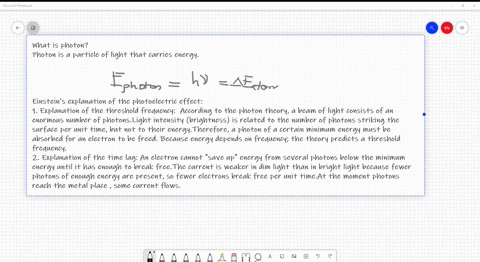 What is photon?
Photon is a particle of light that carries energy.
Ephoton = hν = ΔEatom
Einstein's explanation of the photoelectric effect:
1. Explanation of the threshold frequency: According to the photon theory, a beam of light consists of an
enormous number of photons.Light intensity (brightness) is related to the number of photons striking the
surface per unit time, but not to their energy.Therefore, a photon of a certain minimum energy must be
absorbed for an electron to be freed. Because energy depends on frequency, the theory predicts a threshold
frequency.
2. Explanation of the time lag: An electron cannot "save up" energy from several photons below the minimum
energy until it has enough to break free.The current is weaker in dim light than in bright light because fewer
photons of enough energy are present, so fewer electrons break free per unit time.At the moment photons
reach the metal place , some current flows.